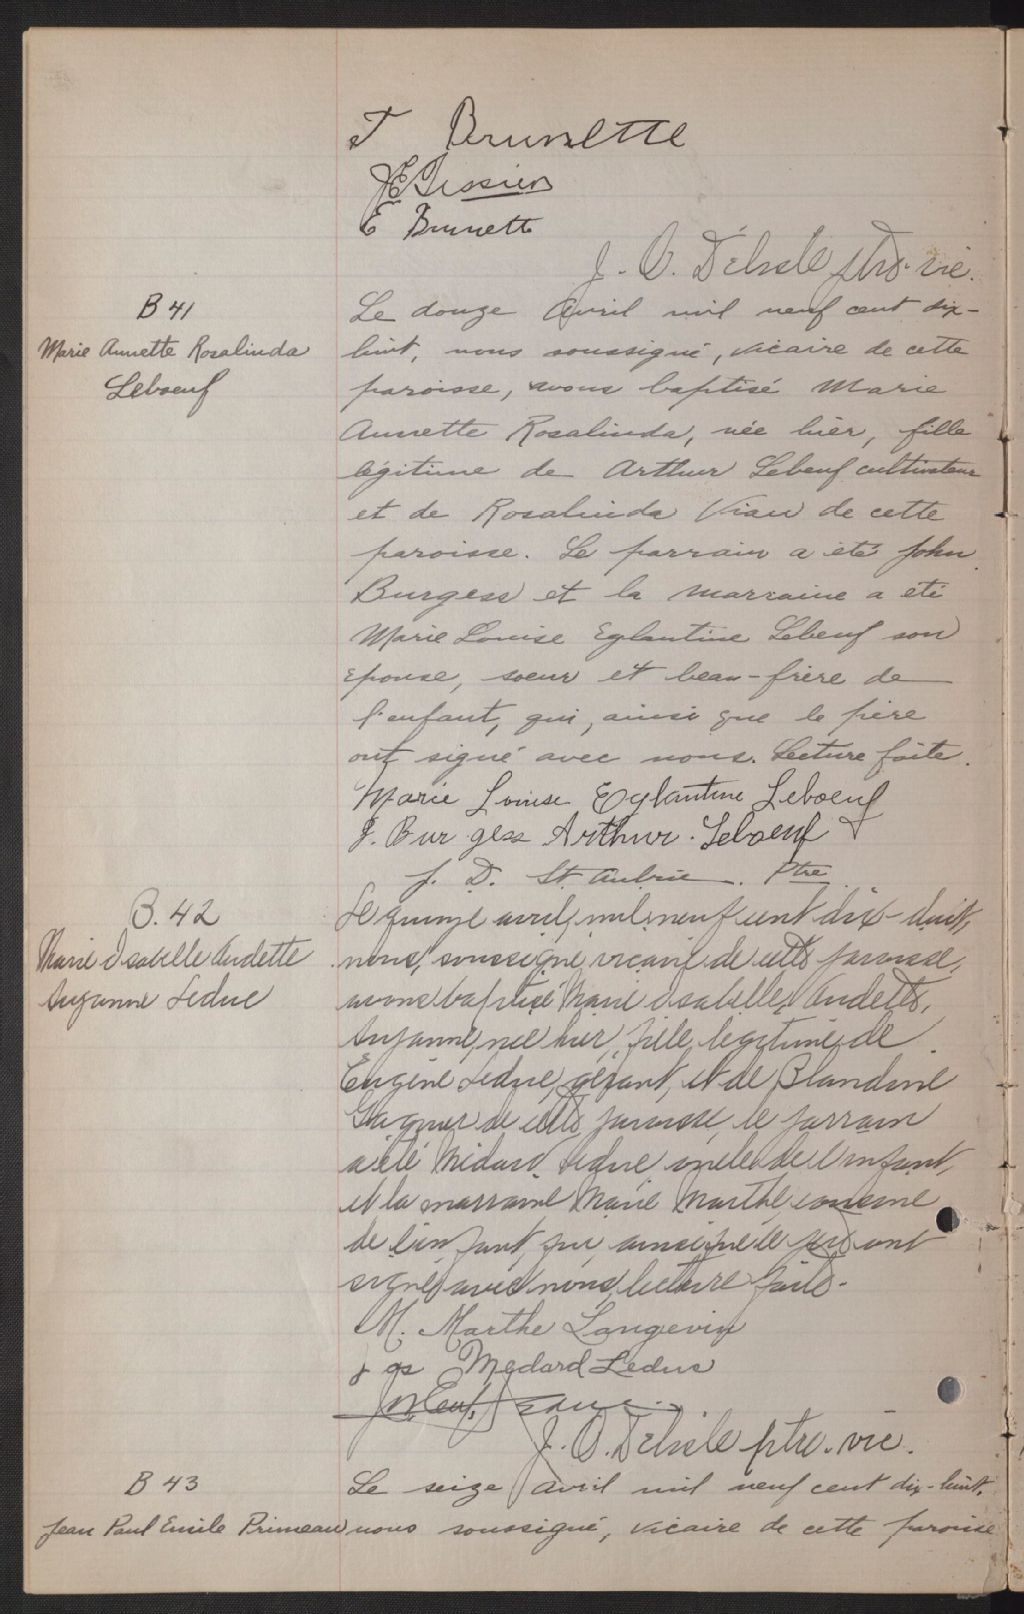 T Brunette
JE Tessier
E Brunette
J. O. Délisle ptre. vic.
B 41
Marie Annette Rosalinda
Leboeuf
Le douze Avril mil neuf cent dix-
huit, nous soussigné, vicaire de cette
paroisse, avons baptisé Marie
Annette Rosalinda, née hier, fille
légitime de Arthur Lebeuf cultivateur
et de Rosalinda Viau de cette
paroisse. Le parrain a été John
Burgess et la marraine a été
Marie Louise Eglantine Lebeuf son
epouse, soeur et beau-frère de
l'enfant, qui, ainsi que le père
ont signé avec nous. Lecture faite.
Marie Louise Eglantine Leboeuf
J. Bur gess Arthur. Leboeuf
J. D. St. Aubin. Ptre
B. 42
Marie Isabelle Audette
Suzanne Leduc
Le quinze avril, mil neuf cent dix-huit,
nous, soussigné vicaire de cette paroisse,
avons baptisé Marie Isabelle, Audette,
Suzanne, née hier, fille legitime de
Eugène Leduc, gérant, et de Blandine
Gagner de cette paroisse, le parrain
a été Médard Leduc oncle de l'enfant,
et la marraine Marie Marthe cousine
de l'enfant, qui, ainsi que le père ont
signé avec nous, lecture faite.
M. Marthe Langevin
Medard Leduc
J. O. Délisle ptre. vic.
B 43
Jean Paul Emile Primeau
Le seize Avril mil neuf cent dix-huit,
nous soussigné, vicaire de cette paroisse